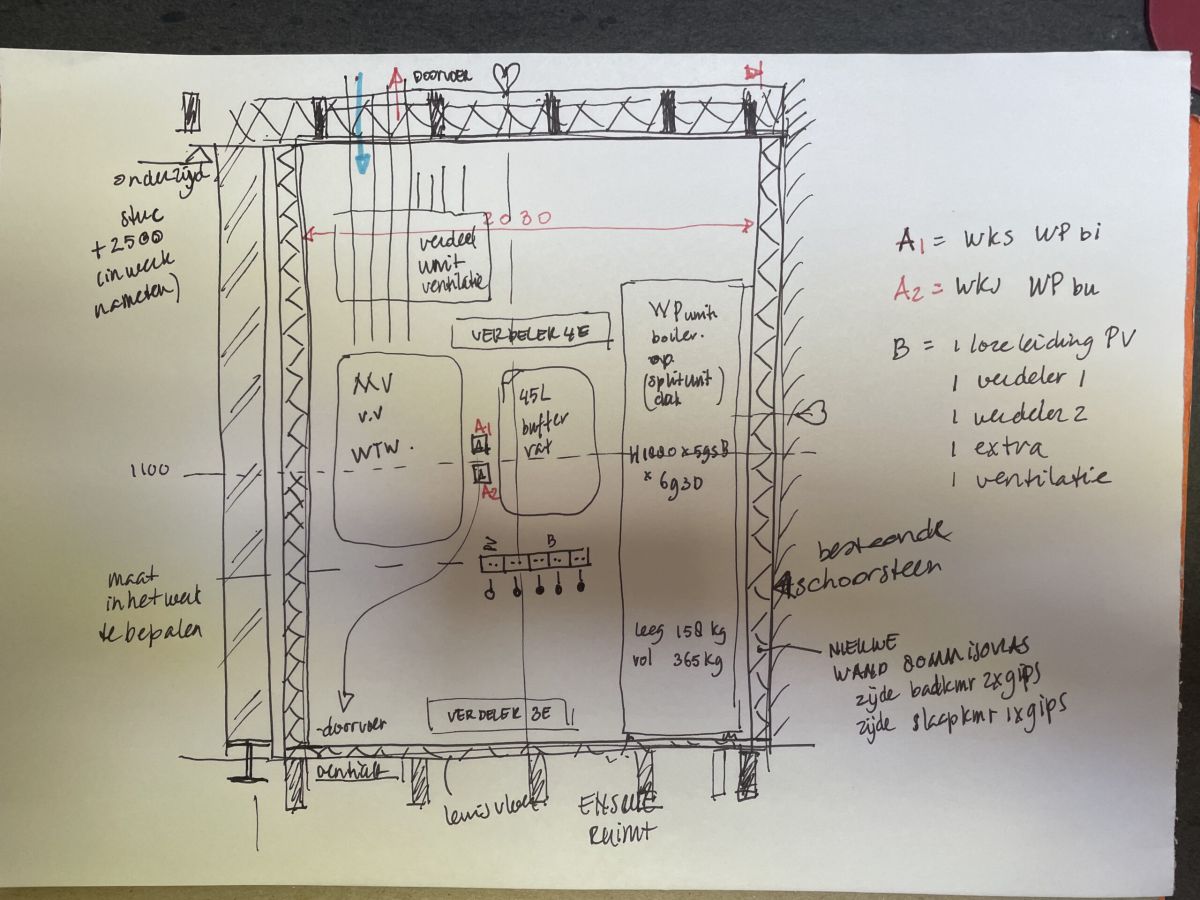 DOORVOER
onderzijd
stuc
+2500
(in werk
nameten)
2030
verdeel
unit
ventilatie
VERDELER 4E
WP unit
boiler.
op.
(splitunit
dak)
MV
v.v
WTW.
45L
buffer
vat
A1
A2
H1880 x 595B
x 693D
1100
PV
B
maat
in het werk
te bepalen
leeg 158 kg
vol 365 kg
VERDELER 3E
doorvoer
lewisvloer
RUIMT
A1 = wks WP bi
A2 = wks WP bu
B = 1 loze leiding PV
1 verdeler 1
1 verdeler 2
1 extra
1 ventilatie
bestaande
schoorsteen
NIEUWE
WAND 80mm isovlas
zijde badkmr 2x gips
zijde slaapkmr 1x gips